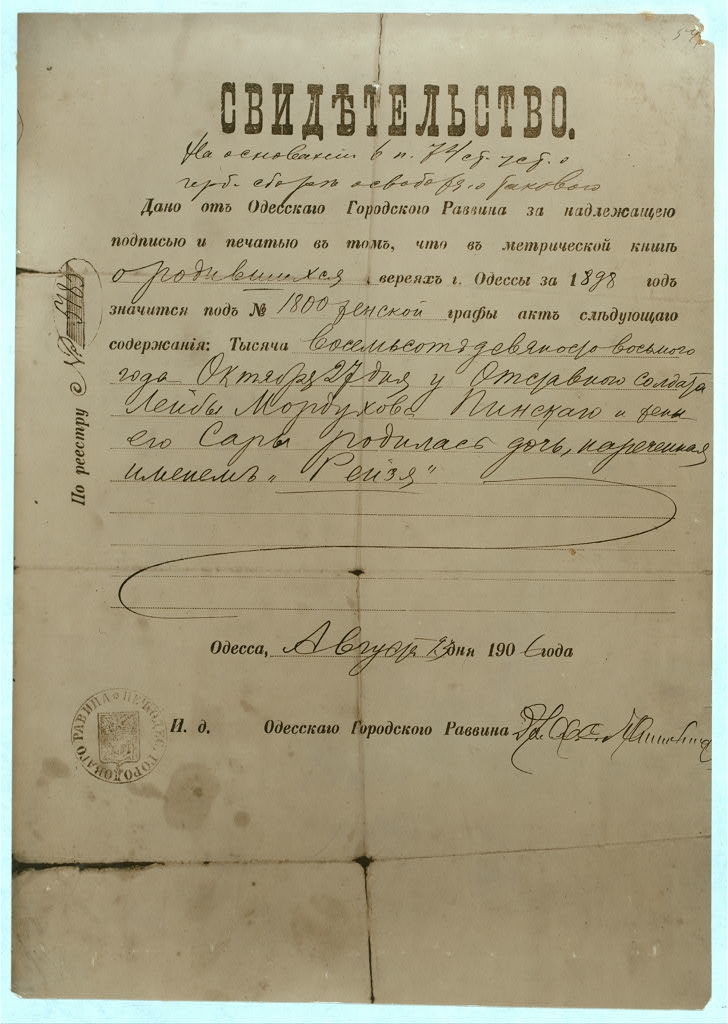 СВИДѢТЕЛЬСТВО.
На основаніи 6 п. 74 ст. уст. о
герб. сборѣ освобожд. о таковаго
Дано отъ Одесскаго Городского Раввина за надлежащею
подписью и печатью въ томъ, что въ метрической книгѣ
о родившихся евреяхъ г. Одессы за 1898 годъ
значится подъ № 1800 женской графы актъ слѣдующаго
содержанія: Тысяча восемьсотъ девяносто восьмого
года Октября 27 дня у Отставного солдата
Лейбы Мордухова Пинскаго и жены
его Сары родилась дочь, нареченная
именемъ „Рейзя“
Одесса, Августа 23 дня 1906 года
И. д. Одесскаго Городского Раввина
По реестру №
ПЕЧ. ОДЕС. ГОРОДОВАГО РАВВИНА